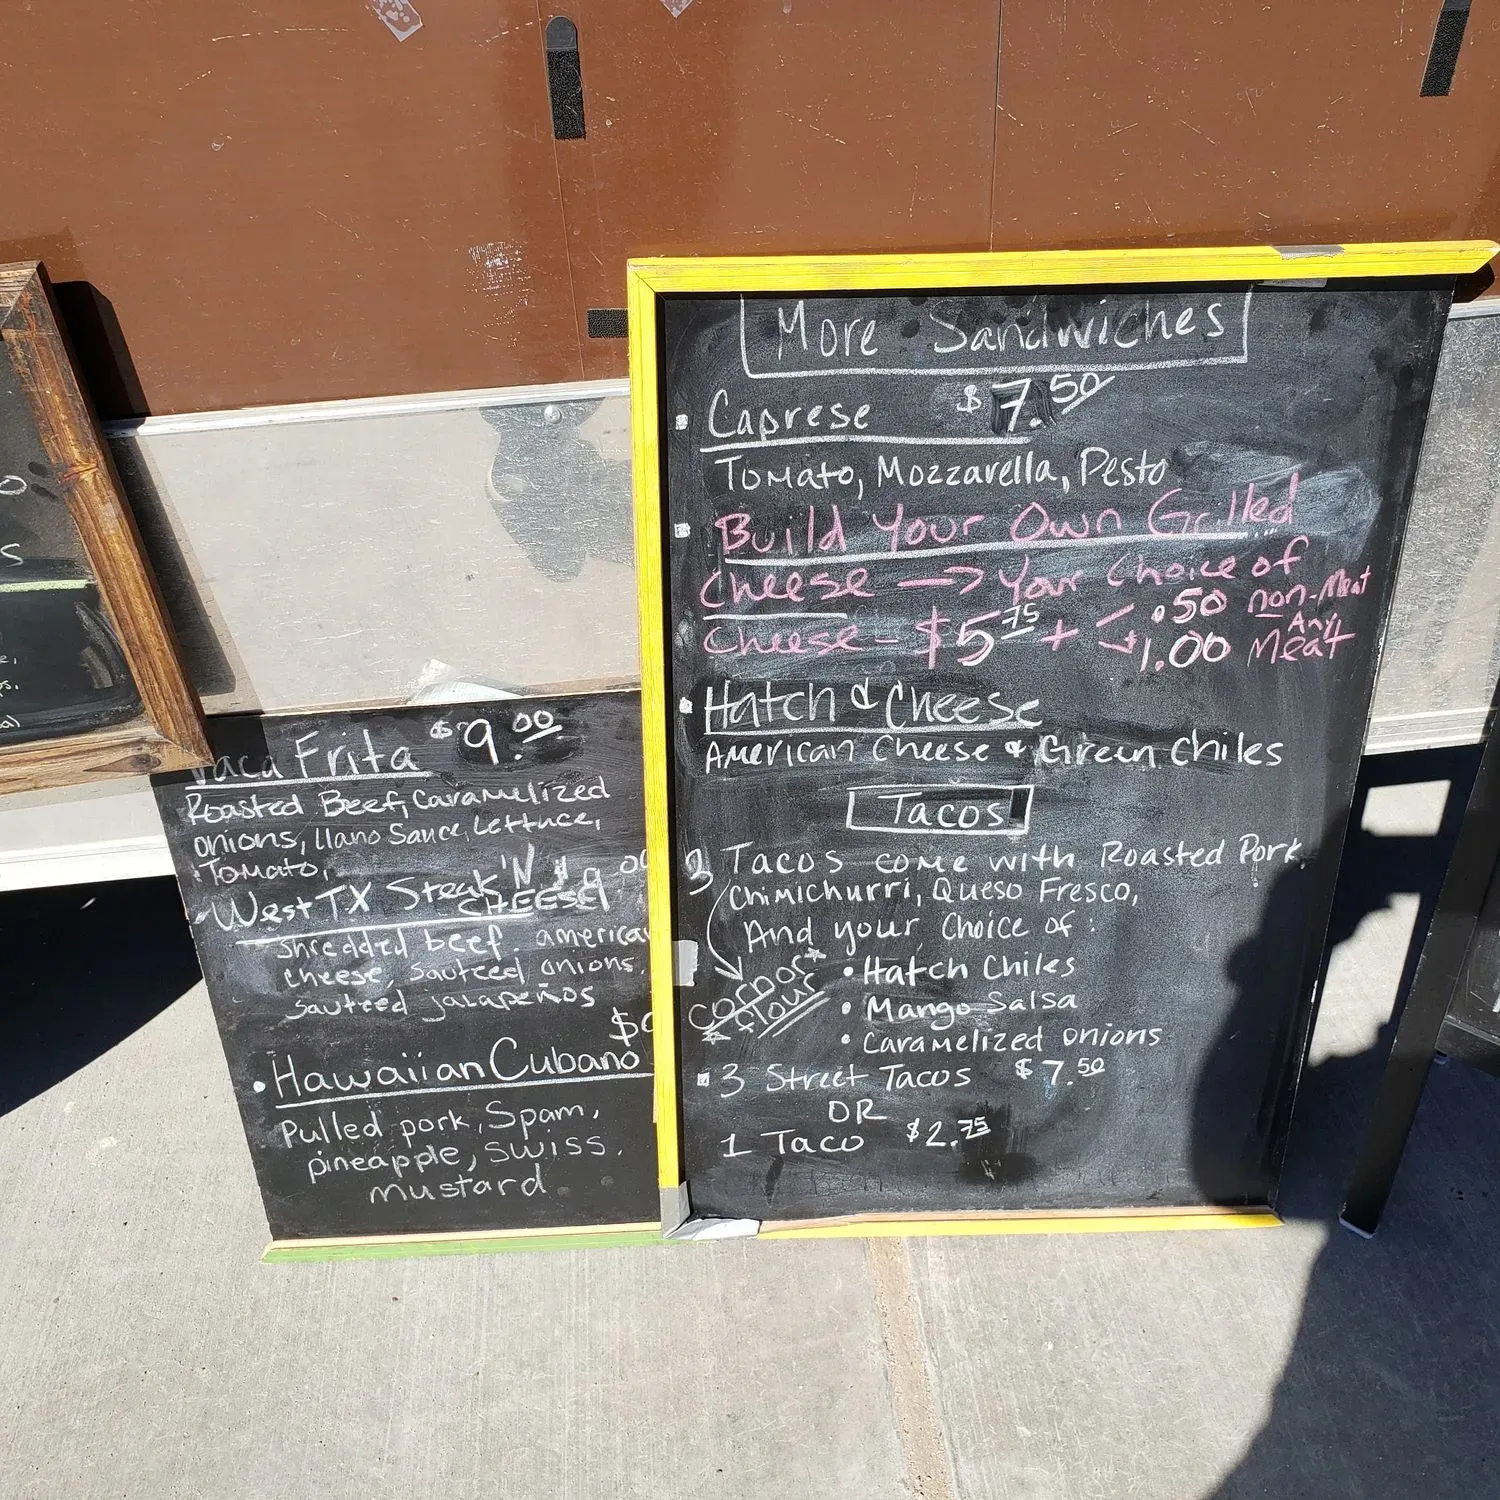 Vaca Frita $9.00
Roasted Beef, Caramelized
onions, llano Sauce, Lettuce,
Tomato,
West TX Steak 'N
CHEESE
shredded beef. american
cheese, sauteed onions.
sauteed jalapeños
Hawaiian Cubano
Pulled pork, Spam,
pineapple, swiss,
mustard
More Sandwiches
Caprese $7.50
Tomato, Mozzarella, Pesto
Build Your Own Grilled
Cheese → Your Choice of
Cheese - $5.75 + .50 non-Meat
1.00 Any Meat
Hatch & Cheese
American Cheese & Green Chiles
Tacos
3 Tacos come with Roasted Pork,
Chimichurri, Queso Fresco,
And your Choice of:
• Hatch Chiles
• Mango Salsa
• Caramelized onions
corn or flour
3 Street Tacos $7.50
OR
1 Taco $2.75